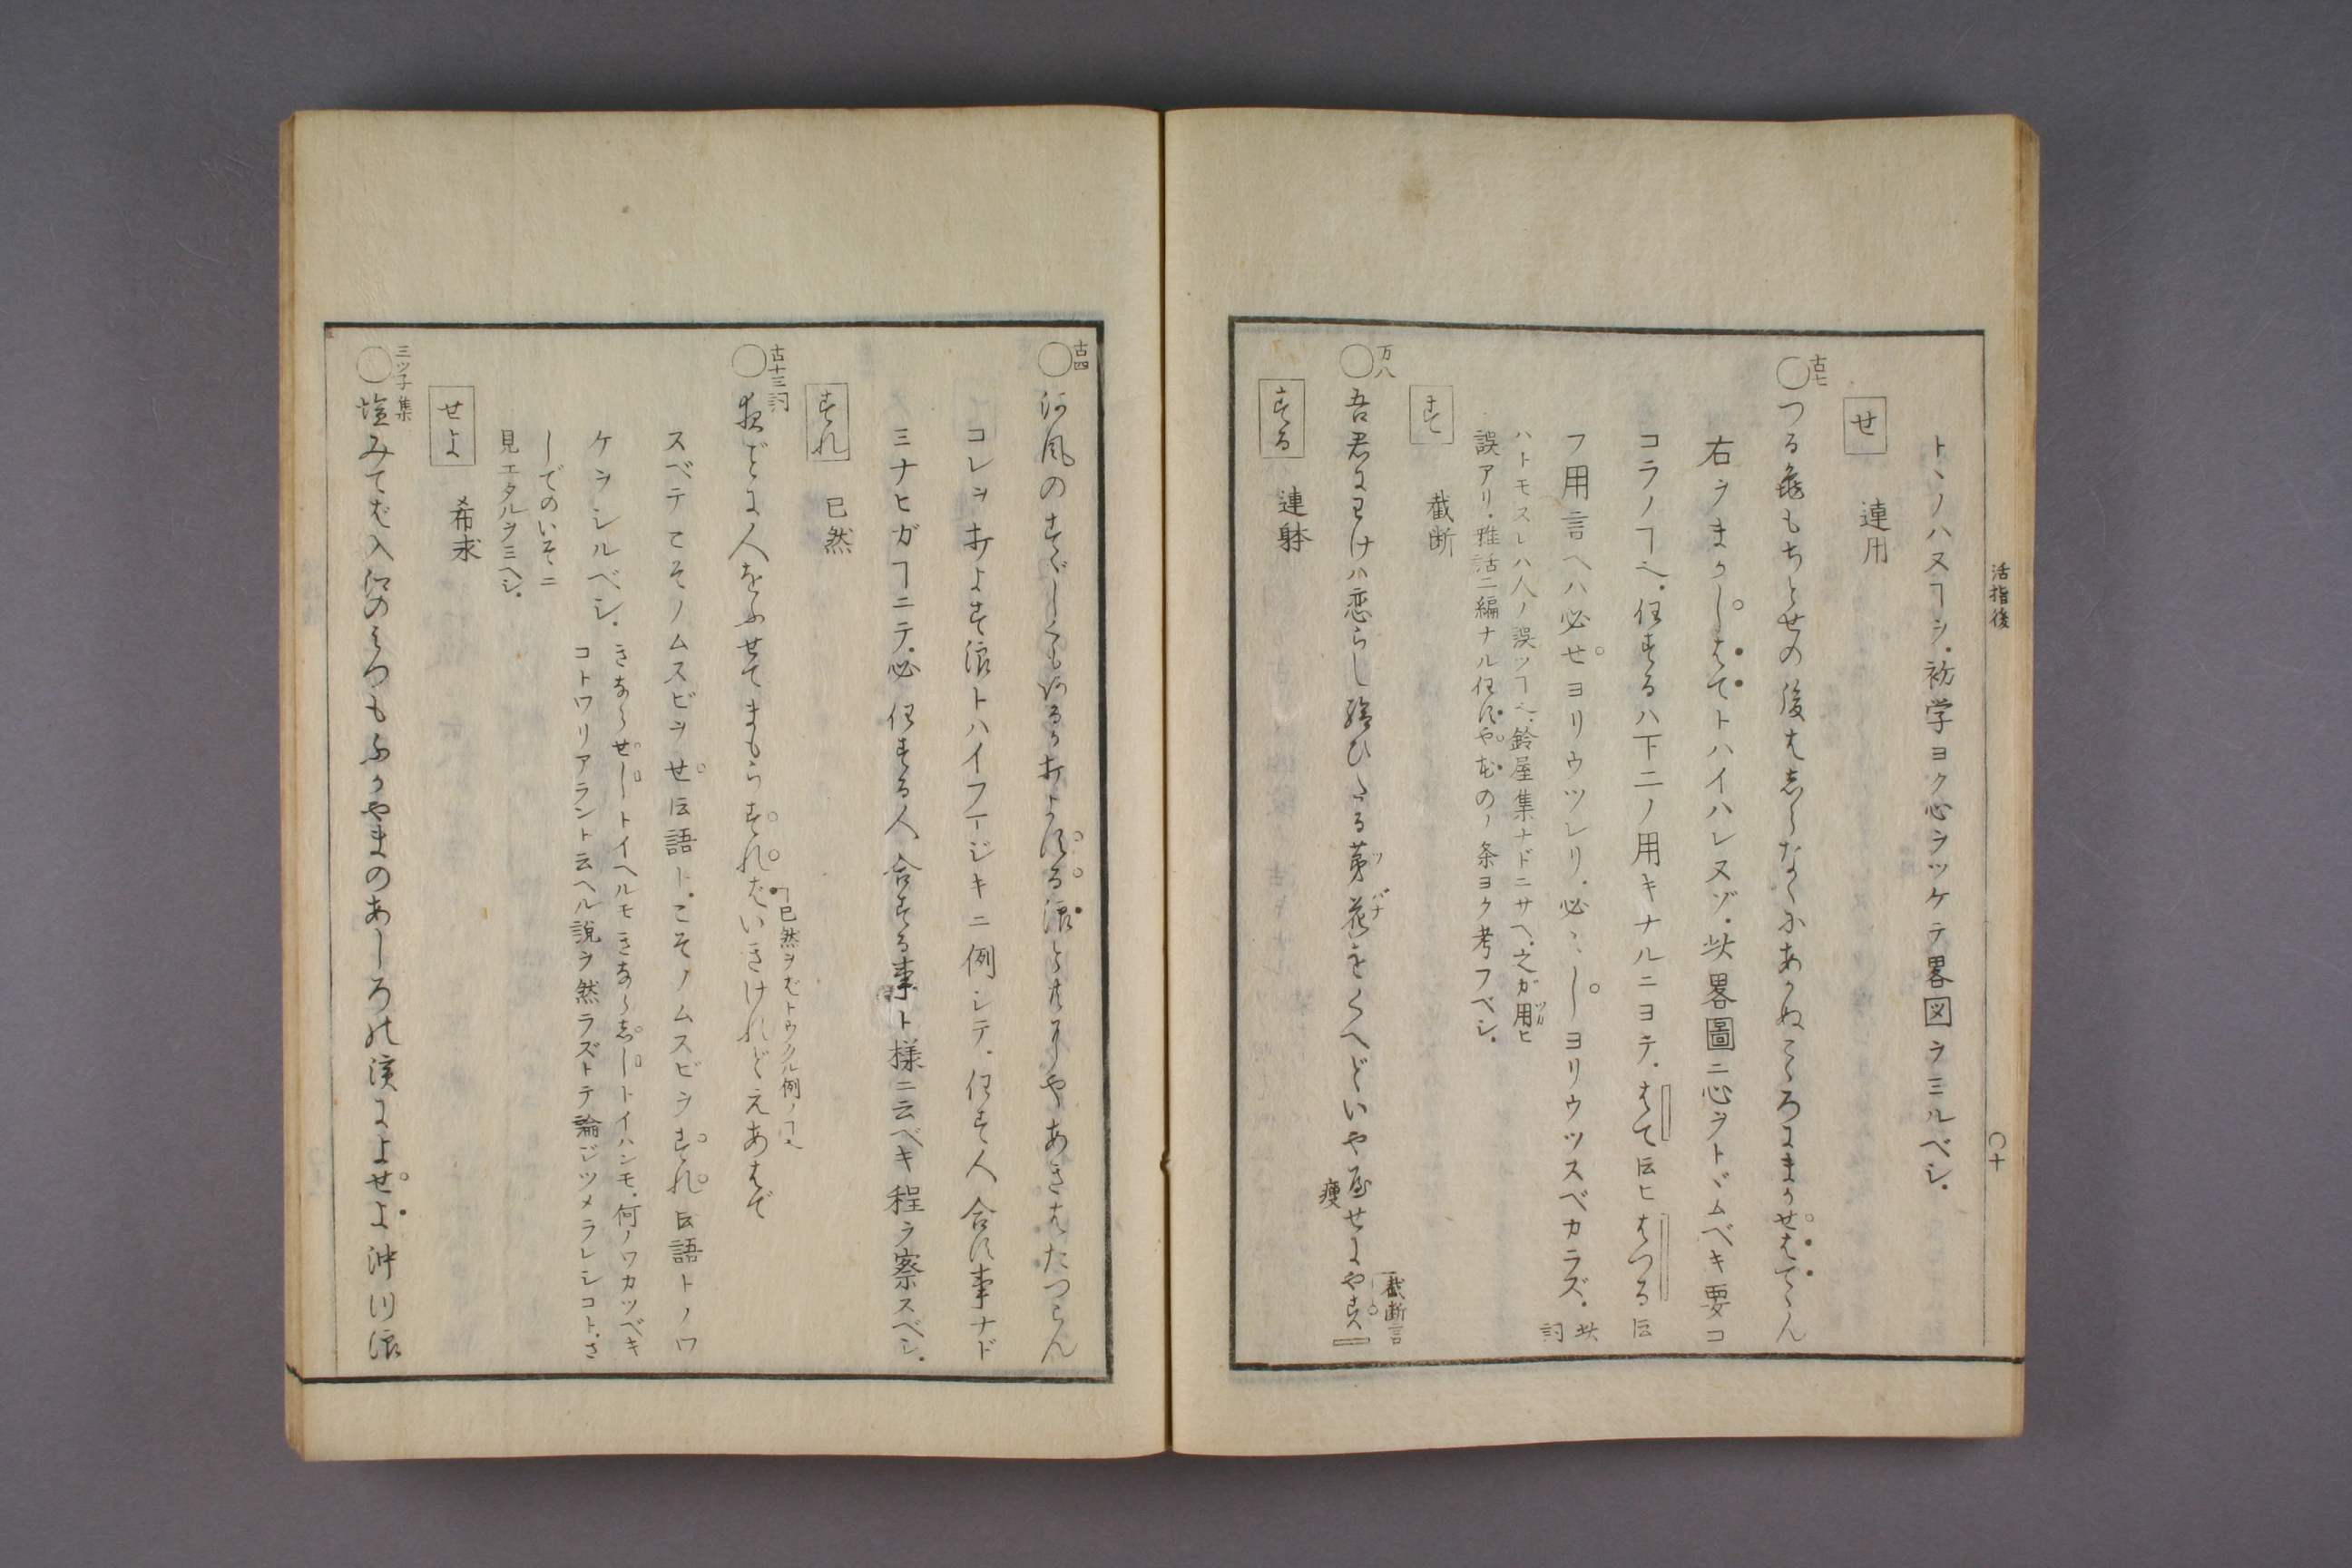 トヽノハヌヿゾ.初学ヨク心ヲツケテ畧図ヲミルベシ.
せ 連用
古七
○つる亀もちとせの後はしらなくにあかぬこゝろにまかせはてゝん
右ヲまかしはてトハイハレヌゾ.此畧圖ニ心ヲトヾムベキ要コ
コラノヿヘ.任するハ下二ノ用キナルニヨテ.はて云ヒはつる云
フ用言ヘハ必せヨリウツレリ.必〻しヨリウツスベカラズ.此詞
ハトモスレハ人ノ誤ツヿヘ.鈴屋集ナドニサヘ之ガ用ヒ
誤アリ.雅語二編ナル任すやむのノ条ヨク考フベシ.
す 截断
万八
○吾君にわけハ恋らし給ひたる茅花をくへどいや痩せにやす
ツバナ
痩
截断言
する 連躰
活指後
○十
古四
○河風のすゞしくもあるかうちよする浪とともにや秋はたつらん
コレヲうちよす浪トハイフマジキニ例シテ.任す人合す事ナド
ミナヒガヿニテ.必任する人合する事ト様ニ云ベキ程ヲ察スベシ.
すれ 已然
古十三詞
夜ごとに人をふせてまもらすればいきけれどえあはで
已然ヲばトウクル例ノヿヘ
スベテこそノムスビヲせ云語ト.こそノムスビヲすれ云語トノワ
ケヲシルベシ.
きならせしトイヘルモきならししトイハンモ.何ノワカツベキ
コトワリアラント云ヘル説ヲ然ラズトテ論ジツメラレシコト.さ
しでのいそニ
見エタルヲミヘシ.
せよ 希求
三ツ子集
○塩みてば入江のみつもふかやまのあしろの濱によせよ沖川浪